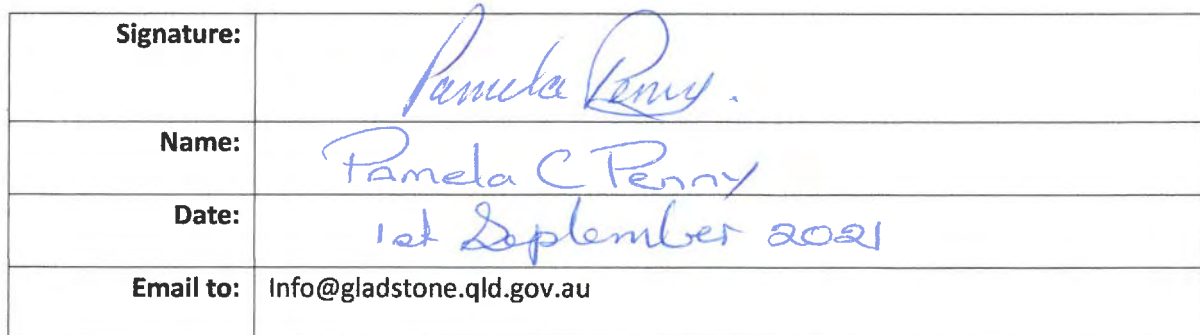 Signature: Pamela Penny.
Name: Pamela C Penny
Date: 1st September 2021
Email to: Info@gladstone.qld.gov.au